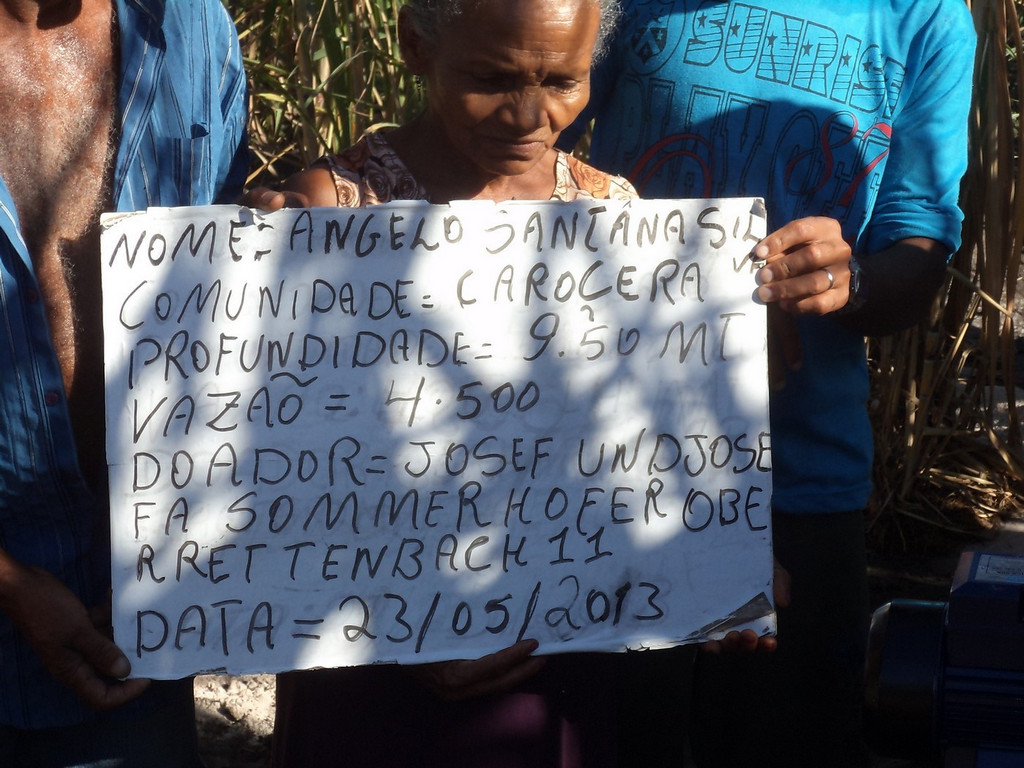 SUNRISE
NOME: ANGELO SANTANA SILVA
COMUNIDADE = CAROÇERA
PROFUNDIDADE = 9.50 MT
VAZÃO = 4.500
DOADOR = JOSEF UND JOSE
FA SOMMERHOFER OBE
RRETTENBACH 11
DATA = 23/05/2013